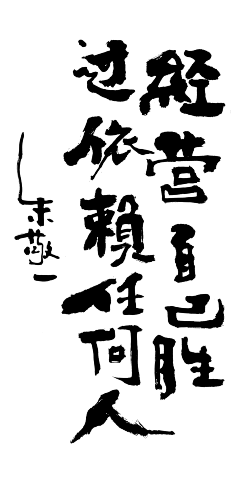 經营自己胜
过依賴任何人
朱敬一